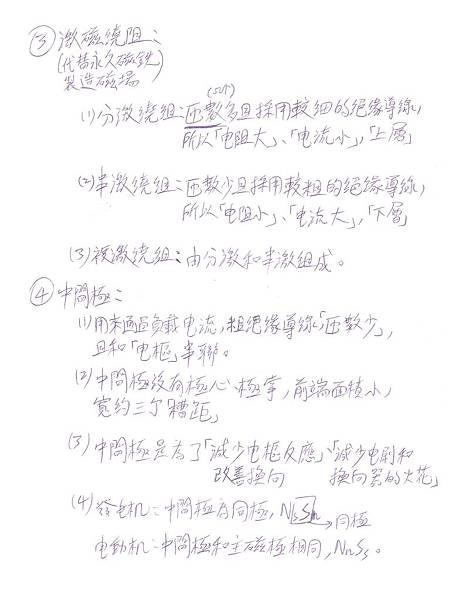 ③ 激磁繞阻：
(代替永久磁鐵)
製造磁場
(1) 分激繞組：匝數多且採用較細的絕緣導線，
所以「电阻大」、「电流小」，「上層」
(2) 串激繞組：匝數少且採用較粗的絕緣導線，
所以「电阻小」、「电流大」，「下層」
(3) 複激繞組：由分激和串激組成。
④ 中間極：
(1) 用來通過負載电流，粗絕緣導線「匝數少」，
且和「电樞」串聯。
(2) 中間極沒有極心、極掌，前端面積小，
寬約三个「槽距」
(3) 中間極是為了「減少电樞反應」、「減少电刷和
改善換向 換向器的火花」
(4) 發电机：中間極為同極，NsSn
同極
电動机：中間極和主磁極相同，NnSs。